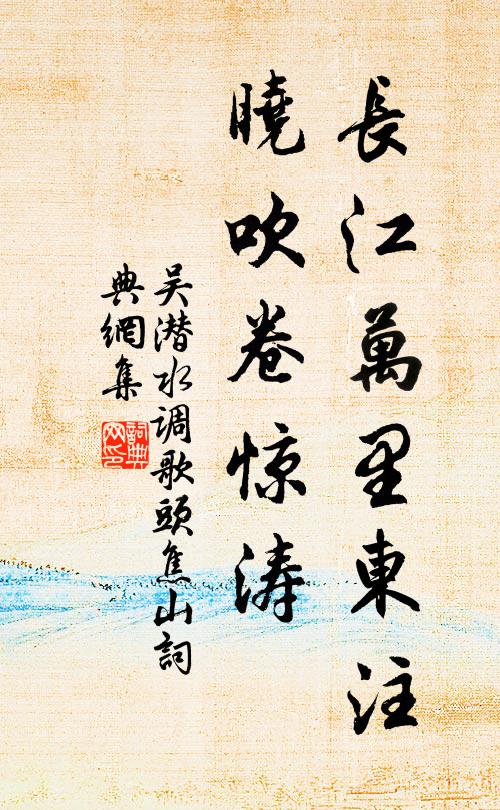 長江萬里東注
曉吹卷惊濤
吴潜水调歌頭焦山詞
典網集
詞典